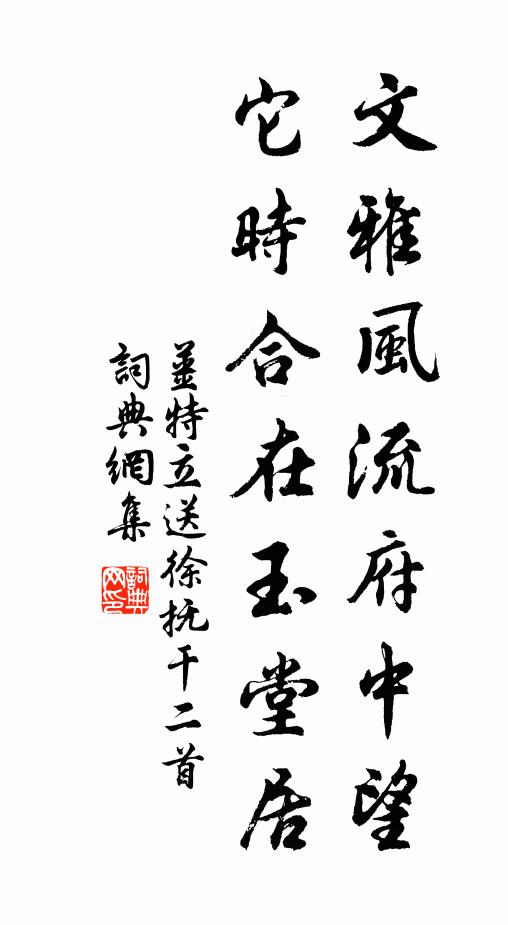 文雅風流府中望
它時合在玉堂居
薑特立送徐抚干二首
詞典網集
詞典网印